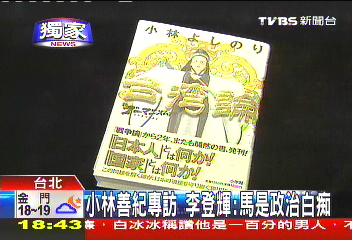 獨家
NEWS
TVBS新聞台
小林よしのり
台湾論
「戦争論」から2年、またも騒然の書、発刊!
「日本人」とは何か!
「国家」とは何か!
台北
金門
18~19
小林善紀專訪 李登輝:馬是政治白痴
18:43
白冰冰稱讚他是一百分的男人